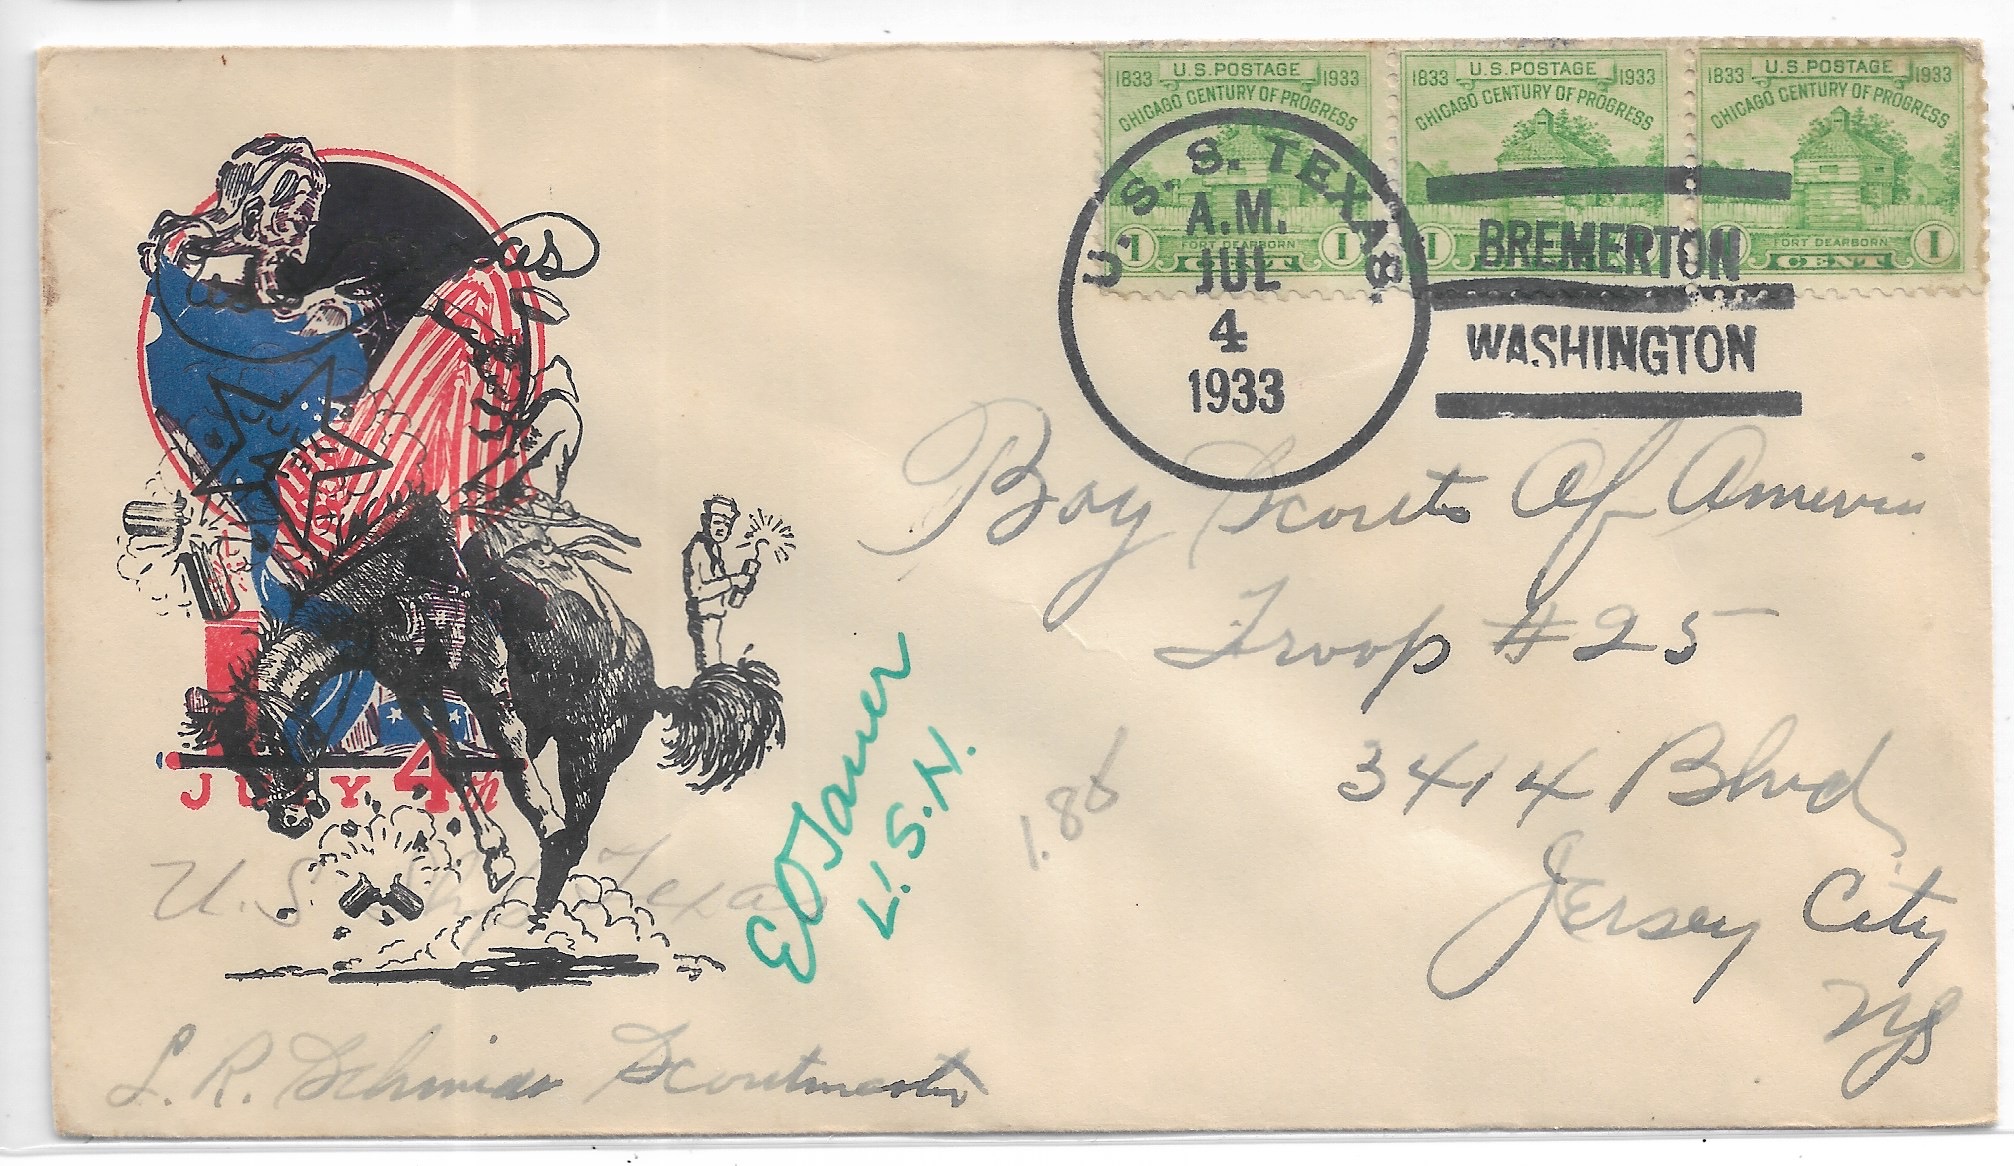 1833 U.S. POSTAGE 1933
CHICAGO CENTURY OF PROGRESS
FORT DEARBORN
1 CENT 1
1833 U.S. POSTAGE 1933
CHICAGO CENTURY OF PROGRESS
1
1833 U.S. POSTAGE 1933
CHICAGO CENTURY OF PROGRESS
FORT DEARBORN
CENT 1
U. S. S. TEXAS.
A.M.
JUL
4
1933
BREMERTON
WASHINGTON
Boy Scouts Of America
Troop #25
3414 Blvd
Jersey City
NJ
JULY 4th
U.S. Ship Texas
E O Tarver
U.S.N.
1.86
L. R. Schmidt Scoutmaster